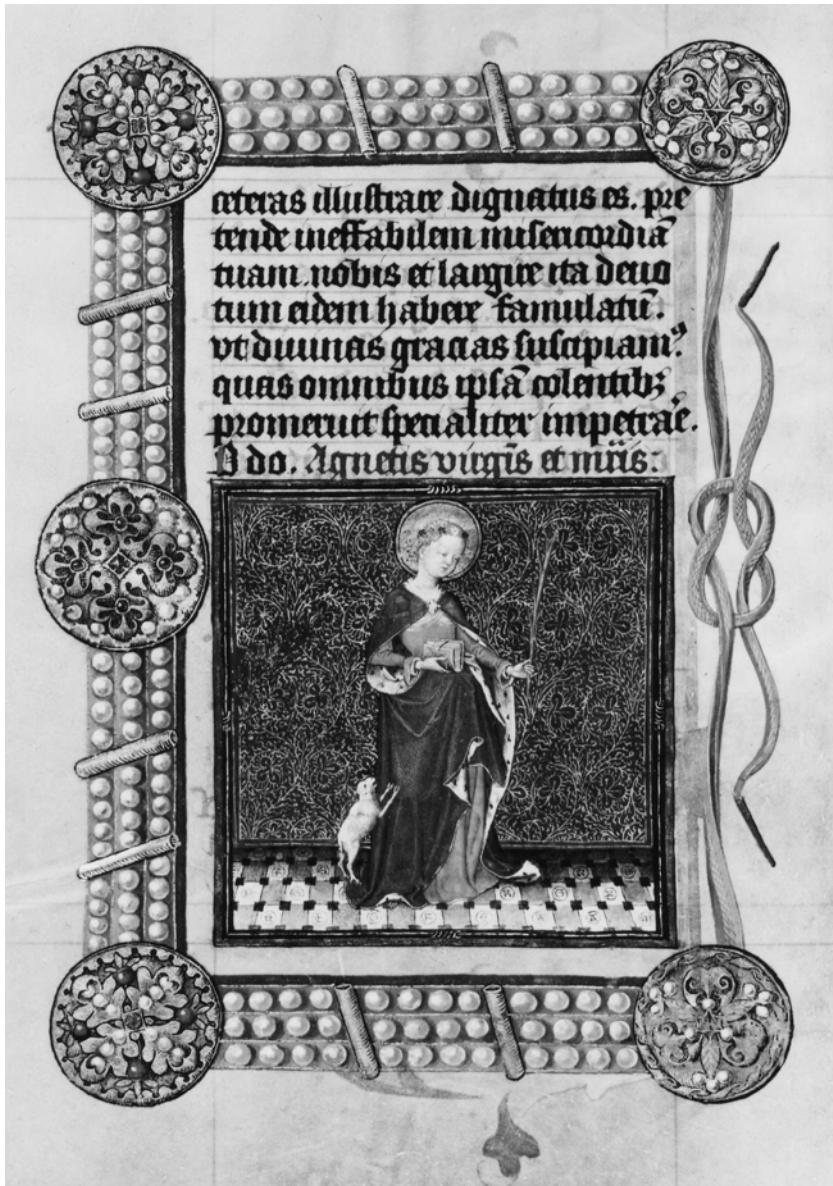 ceteras illustrare dignatus es. pre
tende ineffabilem misericordiā
tuam nobis et largire ita deuo
tum eidem habere famulatū.
vt diuinas gracias suscipiamꝰ
quas omnibus ipsā colentibꝫ
promeruit specialiter impetrar̄e.
D do. Agnetis virgīs et mr̄is: